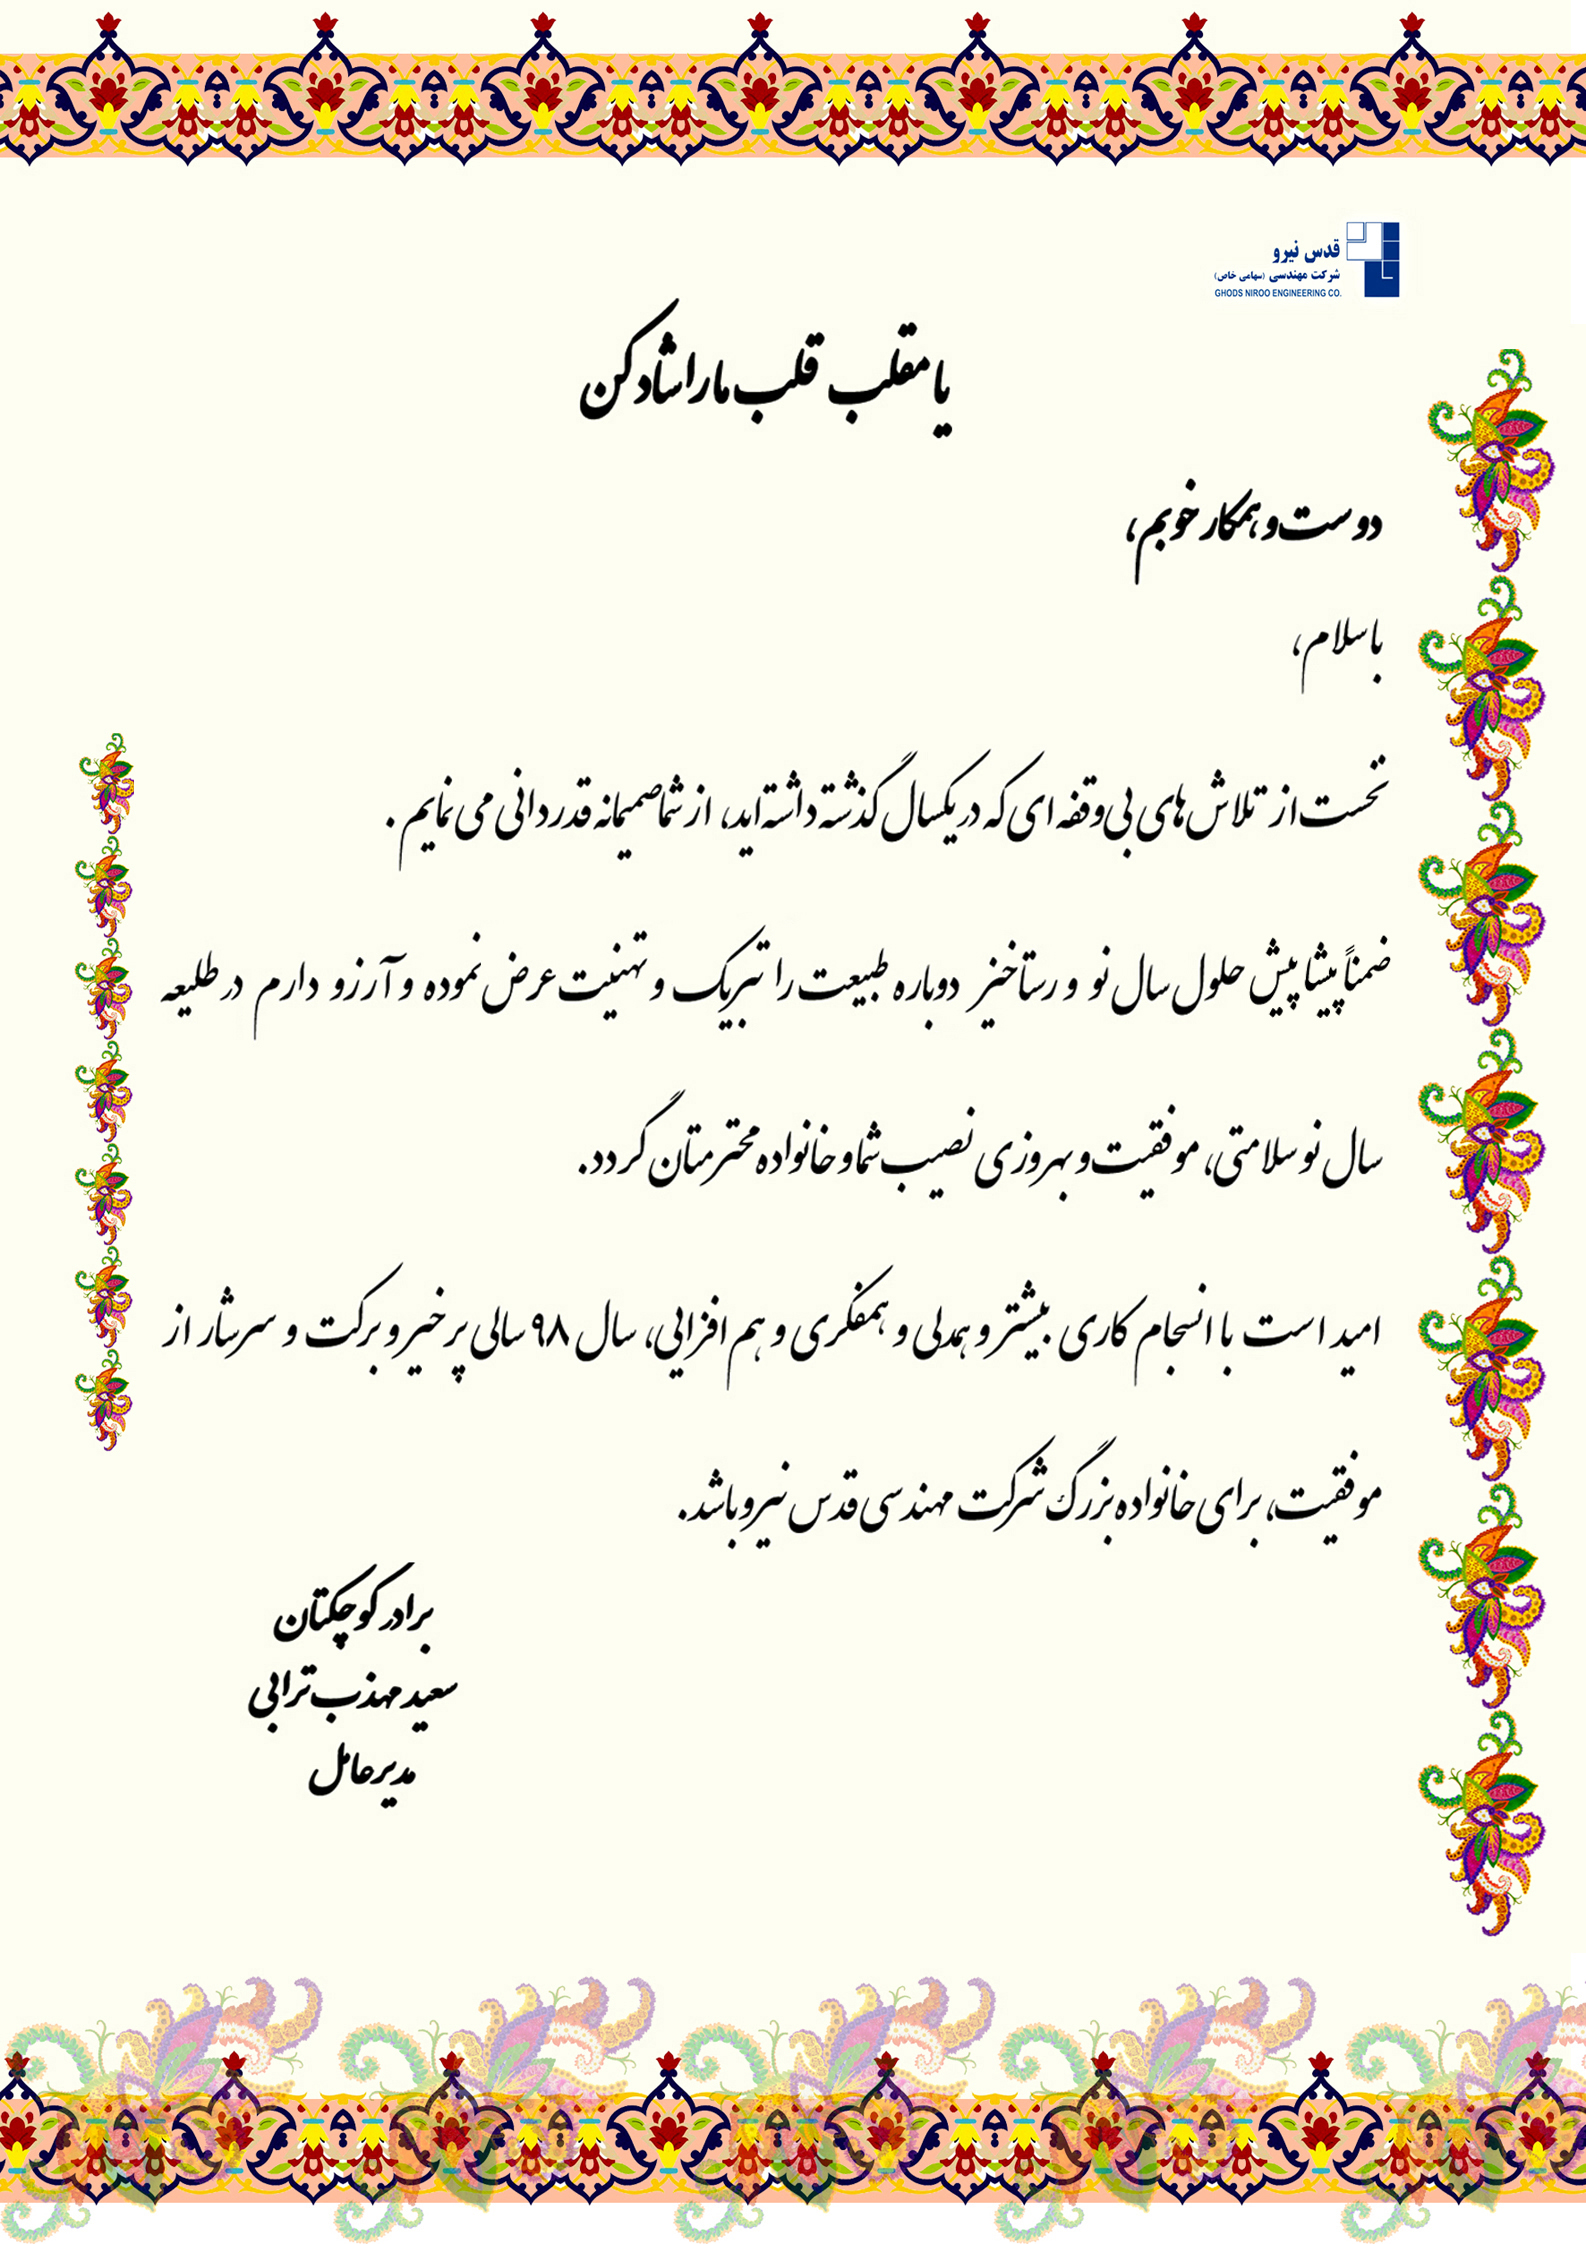 قدس نیرو
شرکت مهندسی (سهامی خاص)
GHODS NIROO ENGINEERING CO.
یا مقلب قلب ما را شاد کن
دوست و همکار خوبم،
با سلام،
نخست از تلاش های بی وقفه ای که در یکسال گذشته داشته اید، از شما صمیمانه قدردانی می نمایم.
ضمناً پیشاپیش حلول سال نو و رستاخیز دوباره طبیعت را تبریک و تهنیت عرض نموده و آرزو دارم در طلیعه
سال نو سلامتی، موفقیت و بهروزی نصیب شما و خانواده محترمتان گردد.
امید است با انسجام کاری بیشتر و همدلی و همفکری و هم افزایی، سال ۹۸ سالی پر خیر و برکت و سرشار از
موفقیت، برای خانواده بزرگ شرکت مهندسی قدس نیرو باشد.
برادر کوچکتان
سعید مهذب ترابی
مدیرعامل